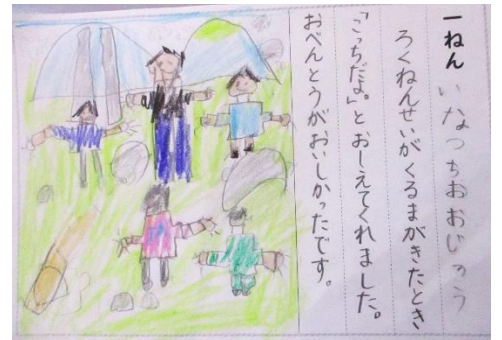 一ねん いなつちおおじろう
ろくねんせいがくるまがきたとき
「こっちだよ。」とおしえてくれました。
おべんとうがおいしかったです。